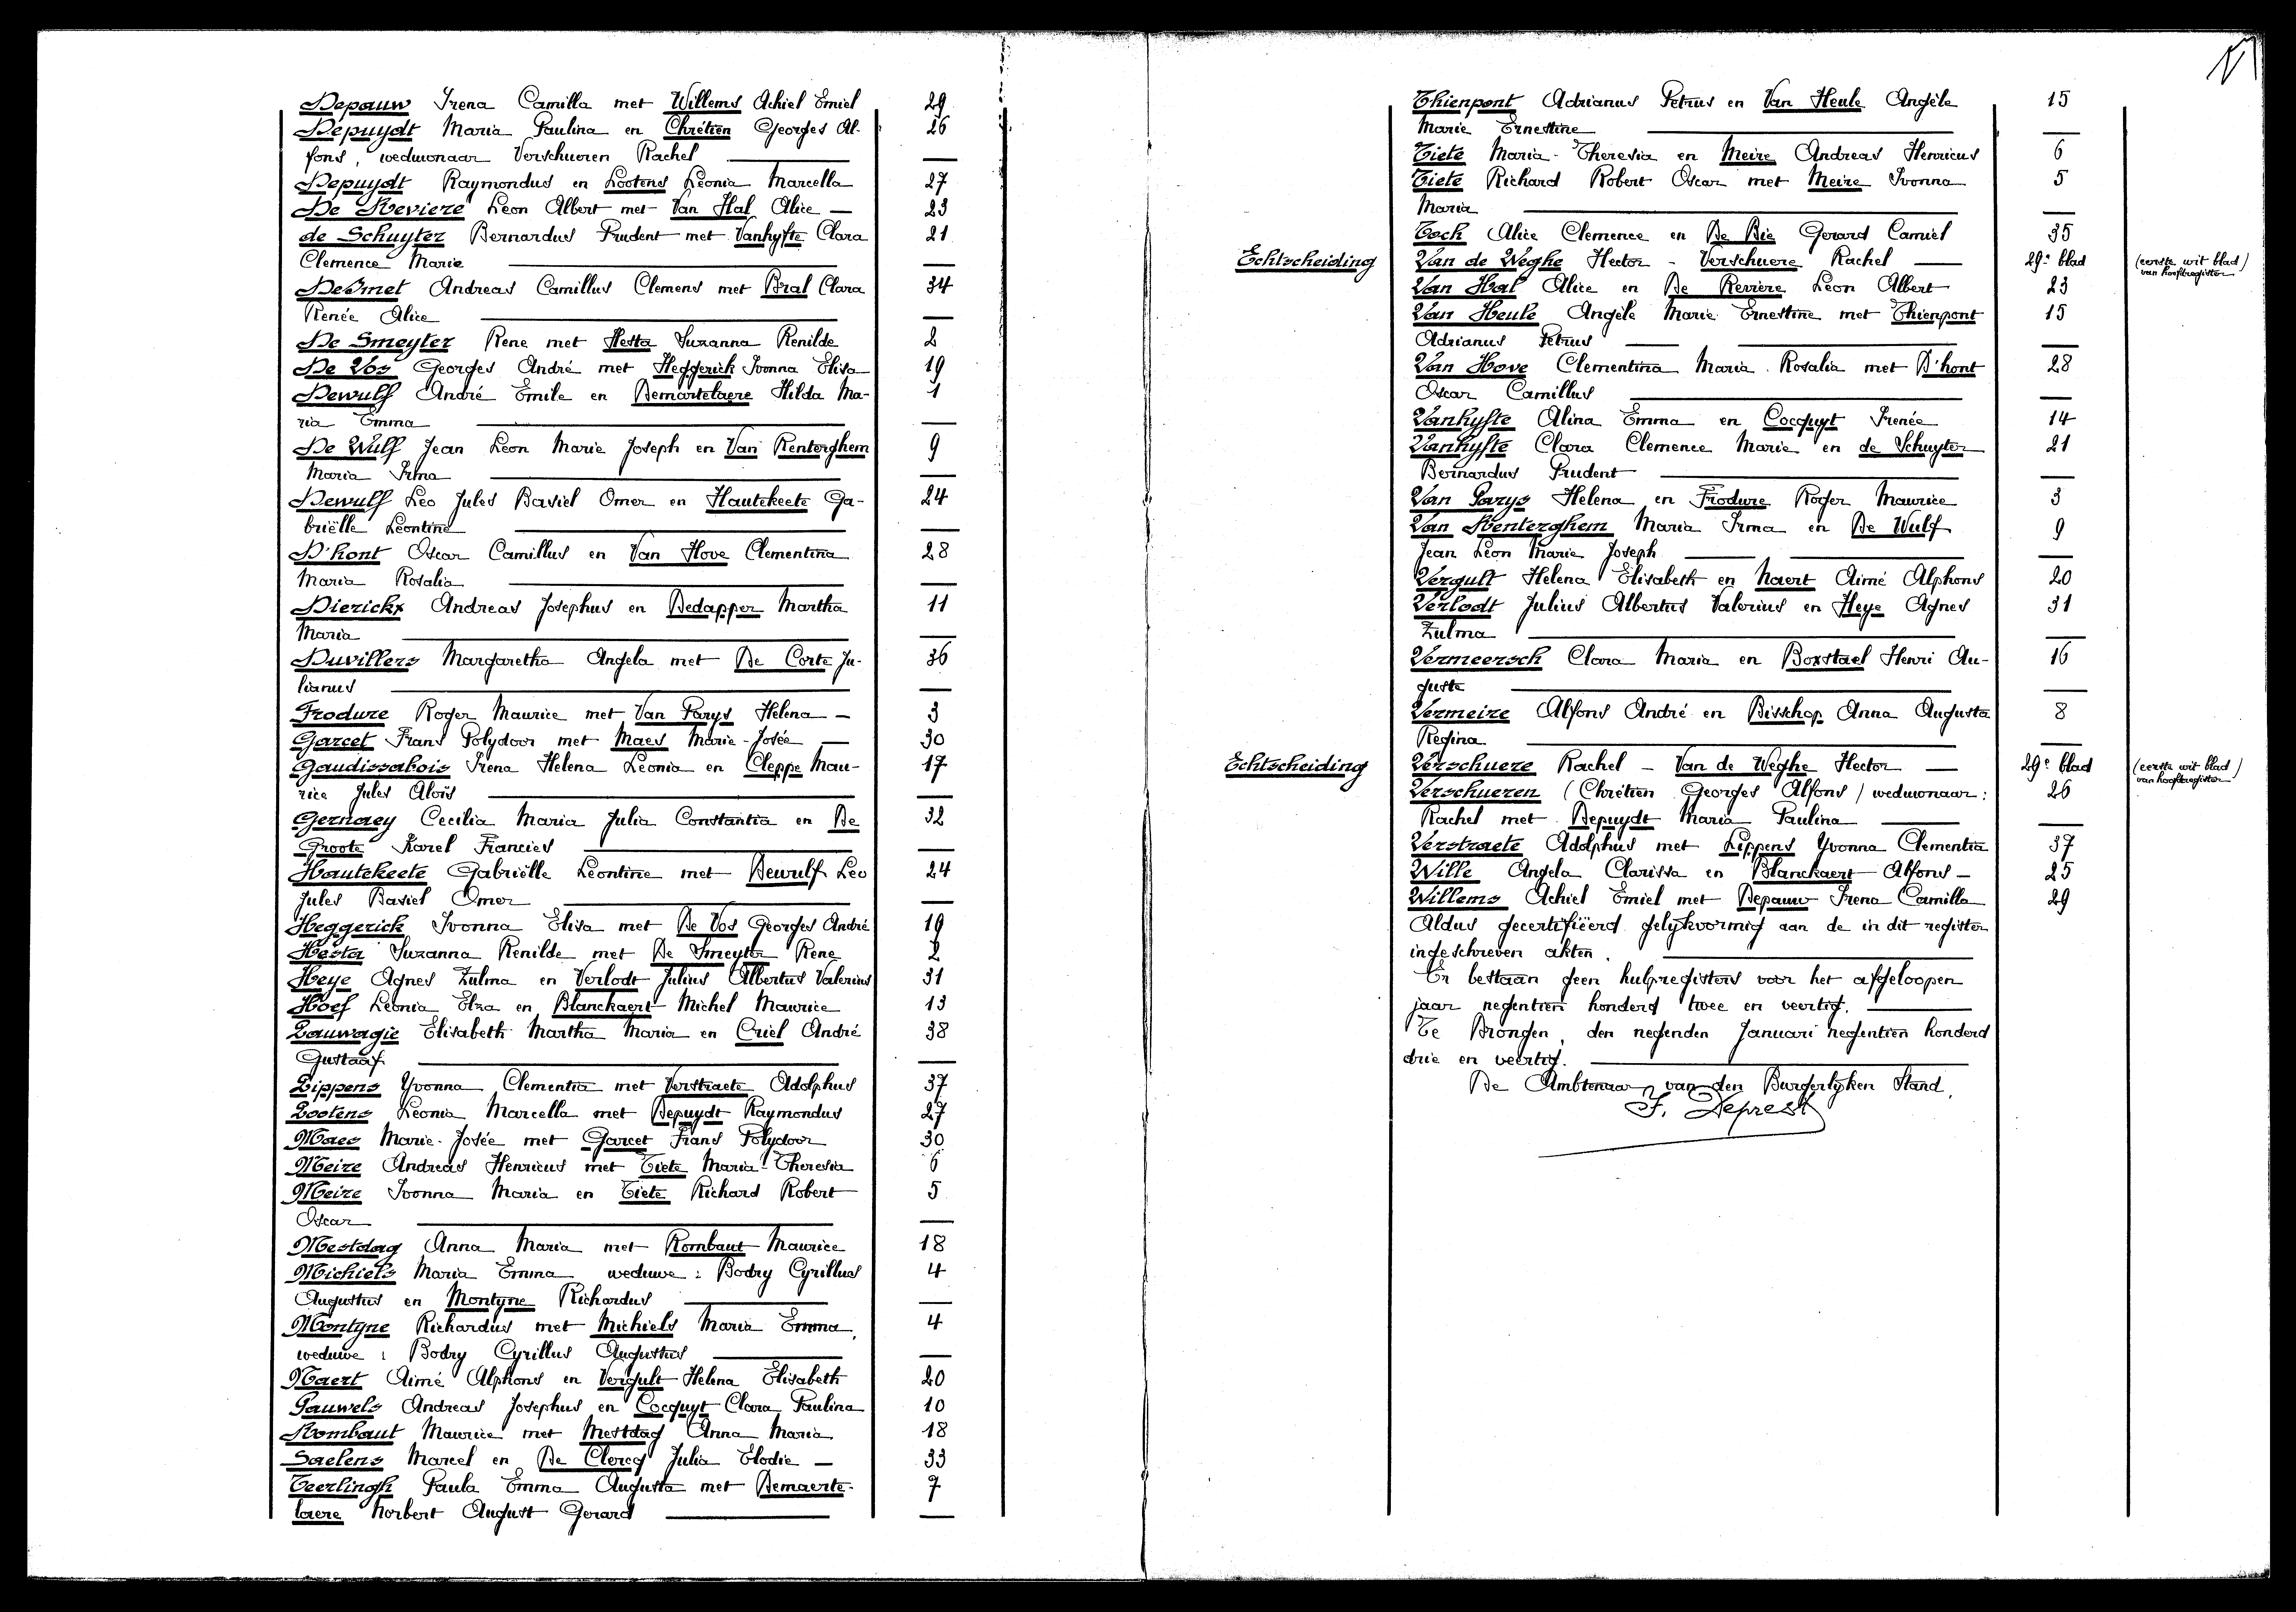 Depauw Irena Camilla met Willems Achiel Emiel 29
Depuydt Maria Paulina en Chrétien Georges Al- 26
fons, weduwnaar Verschueren Rachel —
Depuydt Raymondus en Lootens Leonia Marcella 27
De Reviere Leon Albert met Van Hal Alice — 23
de Schuyter Bernardus Prudent met Vanhyfte Clara 21
Clemence Marie —
DeSmet Andreas Camillus Clemens met Bral Clara 34
Renée Alice —
De Smeyter Rene met Hesta Suzanna Renilde 2
De Vos Georges André met Heggerick Ivonna Elisa 19
Dewulf André Emile en Demartelaere Hilda Ma- 1
ria Emma —
De Wulf Jean Leon Marie Joseph en Van Renterghem 9
Maria Irma —
Dewulf Leo Jules Basiel Omer en Hautekeete Ga- 24
briëlle Leontine —
D'hont Oscar Camillus en Van Hove Clementina 28
Maria Rosalia —
Dierickx Andreas Josephus en Dedapper Martha 11
Maria —
Duvillers Margaretha Angela met De Corte Ju- 36
lianus —
Frodure Roger Maurice met Van Parys Helena — 3
Garcet Frans Polydoor met Maes Marie-Josée — 30
Gaudissabois Irena Helena Leonia en Cleppe Mau- 17
rice Jules Aloïs —
Gernaey Cecilia Maria Julia Constantia en De 32
Groote Karel Francies —
Hautekeete Gabriëlle Leontine met Dewulf Leo 24
Jules Basiel Omer —
Heggerick Ivonna Elisa met De Vos Georges André 19
Hesta Suzanna Renilde met De Smeyter Rene 2
Heye Agnes Zulma en Verlodt Julius Albertus Valerius 31
Hoef Leonia Elza en Blanckaert Michel Maurice 13
Lauwagie Elisabeth Martha Maria en Criel André 38
Gustaaf —
Lippens Yvonna Clementia met Verstraete Adolphus 37
Lootens Leonia Marcella met Depuydt Raymondus 27
Maes Marie-Josée met Garcet Frans Polydoor 30
Meire Andreas Henricus met Tiete Maria-Theresia 6
Meire Ivonna Maria en Tiete Richard Robert 5
Oscar —
Mestdag Anna Maria met Rombaut Maurice 18
Michiels Maria Emma weduwe: Bodry Cyrillus 4
Augustus en Montyne Richardus —
Montyne Richardus met Michiels Maria Emma, 4
weduwe: Bodry Cyrillus Augustus —
Naert Aimé Alphons en Vergult Helena Elisabeth 20
Pauwels Andreas Josephus en Cocquyt Clara Paulina 10
Rombaut Maurice met Mestdag Anna Maria 18
Saelens Marcel en De Clercq Julia Elodie — 33
Teerlingk Paula Emma Augusta met Demaerte- 7
laere Norbert August Gerard —
Thienpont Adrianus Petrus en Van Heule Angèle 15
Marie Ernestine —
Tiete Maria-Theresia en Meire Andreas Henricus 6
Tiete Richard Robert Oscar met Meire Ivonna 5
Maria —
Tock Alice Clemence en De Bie Gerard Camiel 35
Echtscheiding Van de Weghe Hector - Verschuere Rachel — 29e blad (eerste wit blad)
van hoofdregister
Van Hal Alice en De Reviere Leon Albert 23
Van Heule Angèle Marie Ernestine met Thienpont 15
Adrianus Petrus —
Van Hove Clementina Maria Rosalia met D'hont 28
Oscar Camillus —
Vanhyfte Alina Emma en Cocquyt Irenée 14
Vanhyfte Clara Clemence Marie en de Schuyter 21
Bernardus Prudent —
Van Parys Helena en Frodure Roger Maurice 3
Van Renterghem Maria Irma en De Wulf 9
Jean Léon Marie Joseph —
Vergult Helena Elisabeth en Naert Aimé Alphons 20
Verlodt Julius Albertus Valerius en Heye Agnes 31
Zulma —
Vermeersch Clara Maria en Boxstael Henri Au- 16
guste —
Vermeire Alfons André en Bisschop Anna Augusta 8
Regina —
Echtscheiding Verschuere Rachel - Van de Weghe Hector — 29e blad (eerste wit blad)
van hoofdregister
Verschueren (Chrétien Georges Alfons) weduwnaar: 26
Rachel met Depuydt Maria Paulina —
Verstraete Adolphus met Lippens Yvonna Clementia 37
Wille Angela Clarissa en Blanckaert Alfons — 25
Willems Achiel Emiel met Depauw Irena Camilla 29
Aldus gecertifiëerd gelykvormig aan de in dit register
ingeschreven akten.
Er bestaan geen hulpregisters voor het afgeloopen
jaar negentien honderd twee en veertig.
Te Drongen, den negenden Januari negentien honderd
drie en veertig.
De Ambtenaar van den Burgerlyken Stand,
F. Deprest